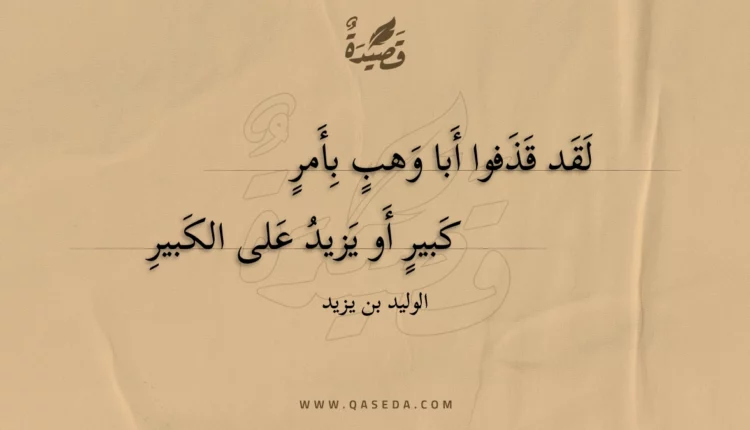 قَصِيْدَةٌ
لَقَد قَذَفوا أَبا وَهبٍ بِأَمرٍ
كَبيرٍ أَو يَزيدُ عَلى الكَبيرِ
الوليد بن يزيد
WWW.QASEDA.COM